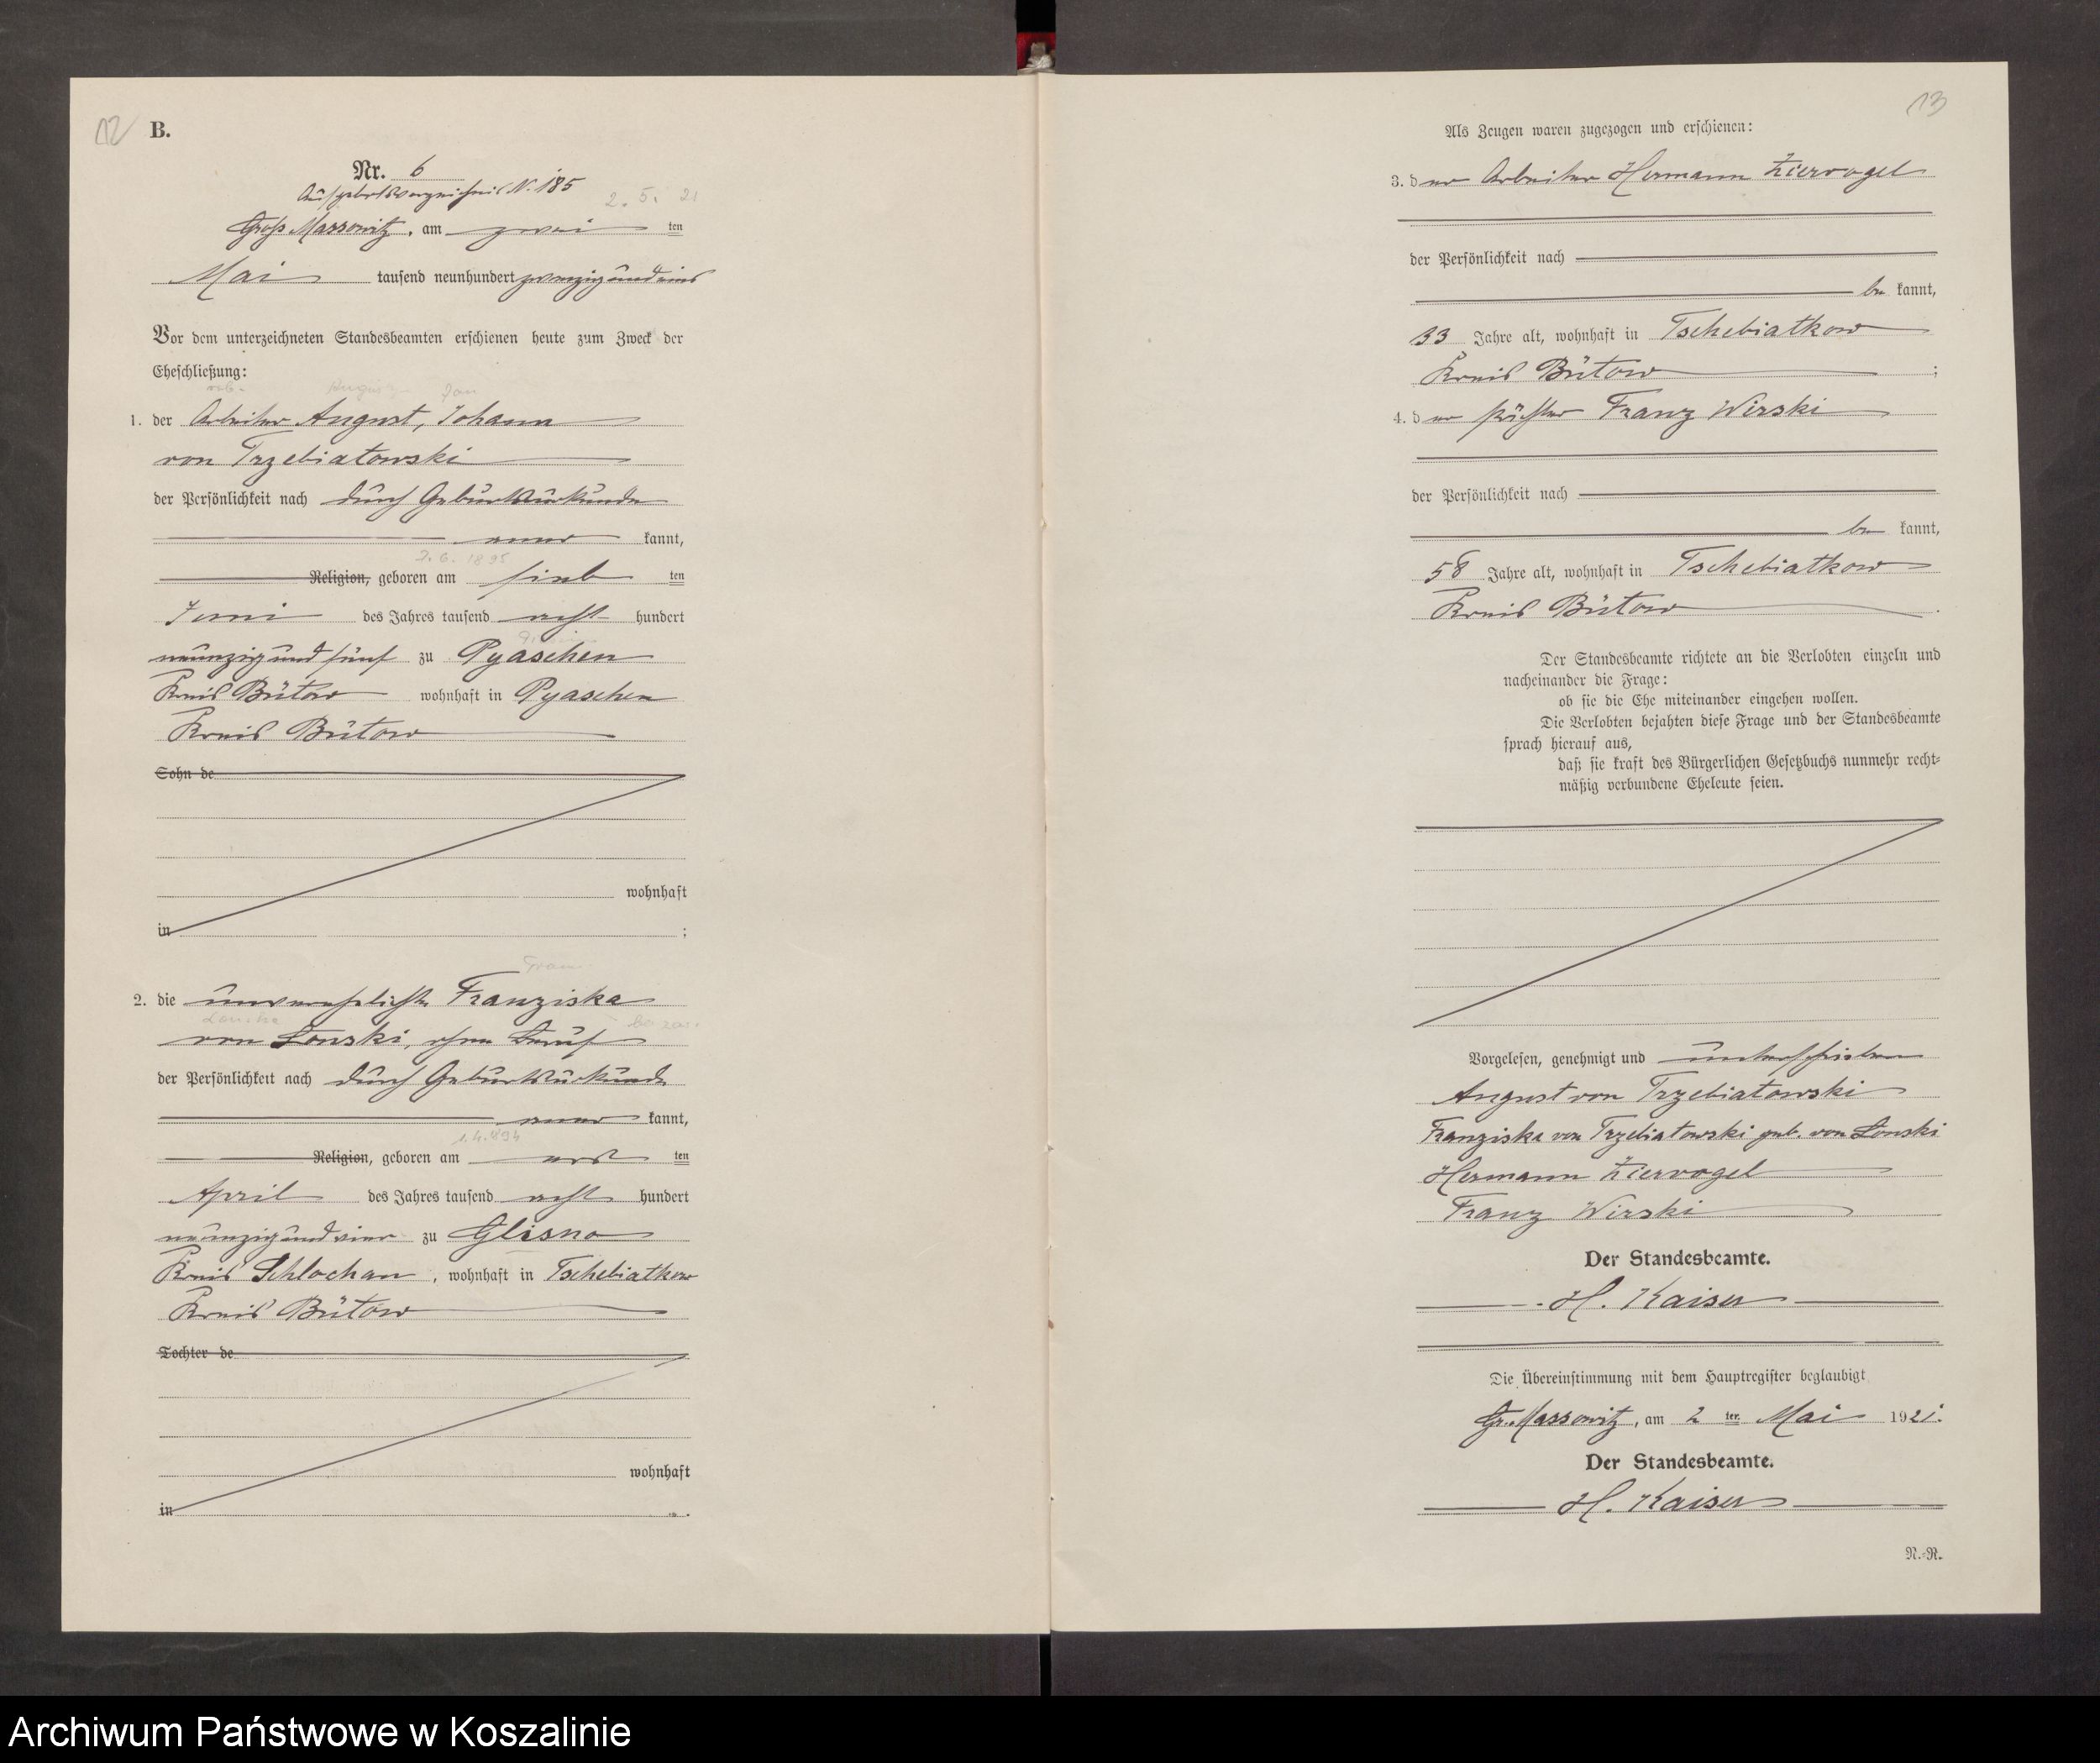 12
B.
Nr. 6
Aufgebotsverzeichnis N. 185
2. 5. 21
Groß Massowitz, am zwei ten
Mai tausend neunhundert zwanzig und eins
Vor dem unterzeichneten Standesbeamten erschienen heute zum Zweck der
Eheschließung:
rob. Jan
1. der Arbeiter August, Johann
von Trzebiatowski
der Persönlichkeit nach durch Geburtsurkunde
aner kannt,
2. 6. 1895
Religion, geboren am ten
Juni des Jahres tausend acht hundert
neunzig und fünf zu Pyaschen
Kreis Bütow wohnhaft in Pyaschen
Kreis Bütow
Sohn de
wohnhaft
in ;
2. die unverehelichte Franziska
von Lonski, ohne Beruf
der Persönlichkeit nach durch Geburtsurkunde
aner kannt,
1.4.894
Religion, geboren am erst ten
April des Jahres tausend acht hundert
neunzig und vier zu Glisno
Kreis Schlochau, wohnhaft in Tschebiatkow
Kreis Bütow
Tochter de
wohnhaft
in
13
Als Zeugen waren zugezogen und erschienen:
3. der Arbeiter Hermann Ziervogel
der Persönlichkeit nach
be kannt,
33 Jahre alt, wohnhaft in Tschebiatkow
Kreis Bütow ;
4. der Pächter Franz Wirski
der Persönlichkeit nach
be kannt,
58 Jahre alt, wohnhaft in Tschebiatkow
Kreis Bütow .
Der Standesbeamte richtete an die Verlobten einzeln und
nacheinander die Frage:
ob sie die Ehe miteinander eingehen wollen.
Die Verlobten bejahten diese Frage und der Standesbeamte
sprach hierauf aus,
daß sie kraft des Bürgerlichen Gesetzbuchs nunmehr recht-
mäßig verbundene Eheleute seien.
Vorgelesen, genehmigt und unterschrieben
August von Trzebiatowski
Franziska von Trzebiatowski geb. von Lonski
Hermann Ziervogel
Franz Wirski
Der Standesbeamte.
H. Kaiser
Die Übereinstimmung mit dem Hauptregister beglaubigt
Gr. Massowitz, am 2 ten Mai 1921.
Der Standesbeamte.
H. Kaiser
N.-R.
Archiwum Państwowe w Koszalinie